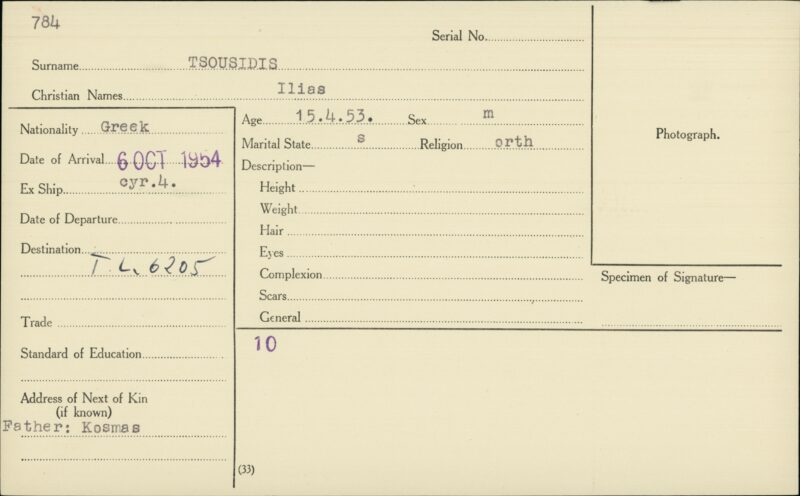 784
Serial No.
Surname TSOUSIDIS
Christian Names Ilias
Nationality Greek
Date of Arrival 6 OCT 1954
Ex Ship cyr.4.
Date of Departure
Destination
T.L. 6205
Trade
Standard of Education
Address of Next of Kin
(if known)
Father: Kosmas
Age 15.4.53. Sex m
Marital State s Religion orth
Description—
Height
Weight
Hair
Eyes
Complexion
Scars
General
10
(33)
Photograph.
Specimen of Signature—